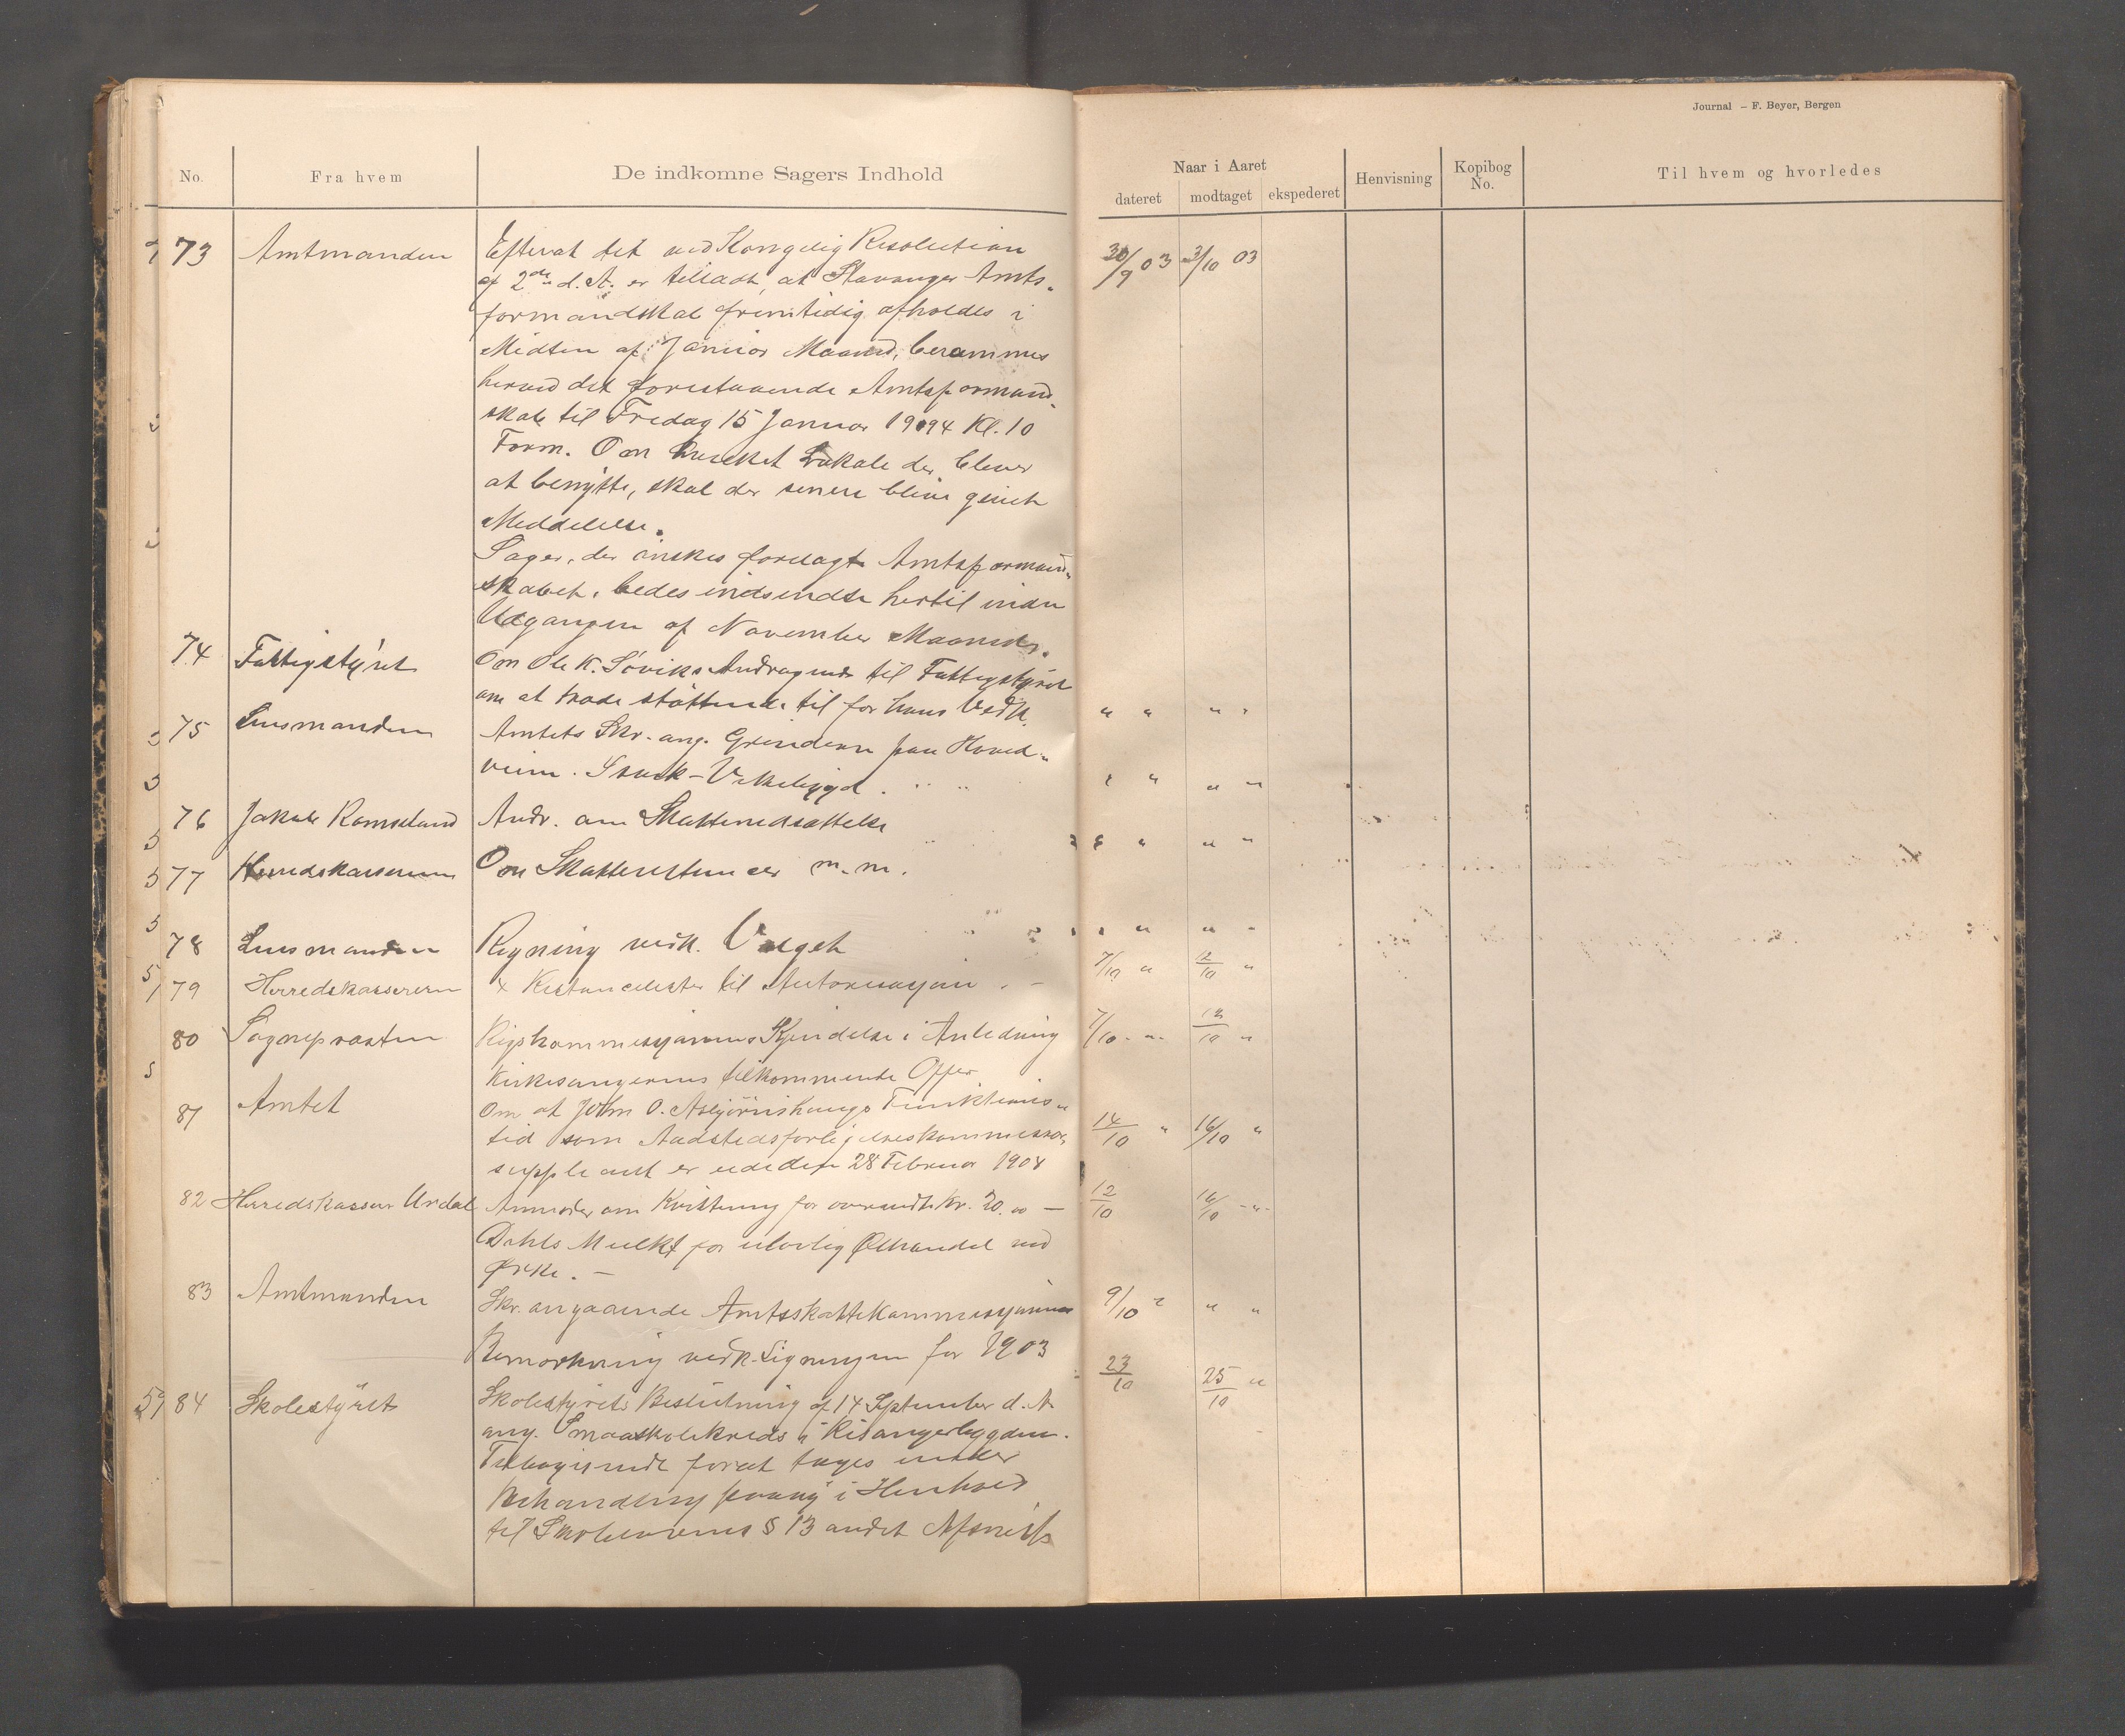 Journal – F. Beyer, Bergen
No. Fra hvem De indkomne Sagers Indhold Naar i Aaret Henvisning Kopibog No. Til hvem og hvorledes
dateret modtaget ekspederet
73 Amtmanden Efterat det ved Kongelig Resolution 30/9 03 3/10 03
af 2den d. A. er tilladt, at Stavanger Amts-
formandskab fremtidig afholdes i
Midten af Januar Maaned, berammes
herved det forestaaende Amtsformand-
skab til Fredag 15 Januar 1904 Kl. 10
Form. Om hvilket Lokale der bliver
at benytte, skal der senere blive givet
Meddelelse.
Sager, der ønskes forelagt Amtsformand-
skabet, bedes indsendte hertil inden
Udgangen af November Maaned.
74 Fattigstyret Om Ole K. Søviks Andragende til Fattigstyret
om at træde støttende til for hans Vedk. " " " "
75 Lensmanden Amtets Skr. ang. Grinderne paa Hoved-
veien. – Vikebygd. " " " "
76 Jakob Ramseland Andr. om Skattenedsættelse " " " "
77 Herredskassereren Om Skatterestancer m.m.
78 Lensmanden Regning vedk. Valget " " " "
79 Herredskassereren Restancelister til Autorisasjon 7/10 " 12/10 "
80 Sognepræsten Rigskommissjonens Kjendelse i Anledning 7/10 " 12/10 "
Kirkesangerens tilkommende Offer
81 Amtet Om at John O. Asbjørnshaugs Funktions-
tid som 14/10 " 16/10 "
suppleant er ude den 28 Februar 1904
82 Herredskasser Urdal Anmoder om Kvittering for oversendte Kr. 20.00 – 12/10 16/10 "
Dahls Mulkt for ulovlig Ølhandel ved
Ørke. –
83 Amtmanden Skr. angaaende Amtsskattekommissjonens 9/10 " " "
Bemærkning vedk. Ligningen for 1903
84 Skolestyret Skolestyrets Beslutning af 14 September d. A. 23/10 25/10 "
ang. Smaaskolekreds i Risangerbygden.
Tilbagesendt forat tages under
Behandling paany i Henhold
til Skolelovens § 13 andet Afsnit